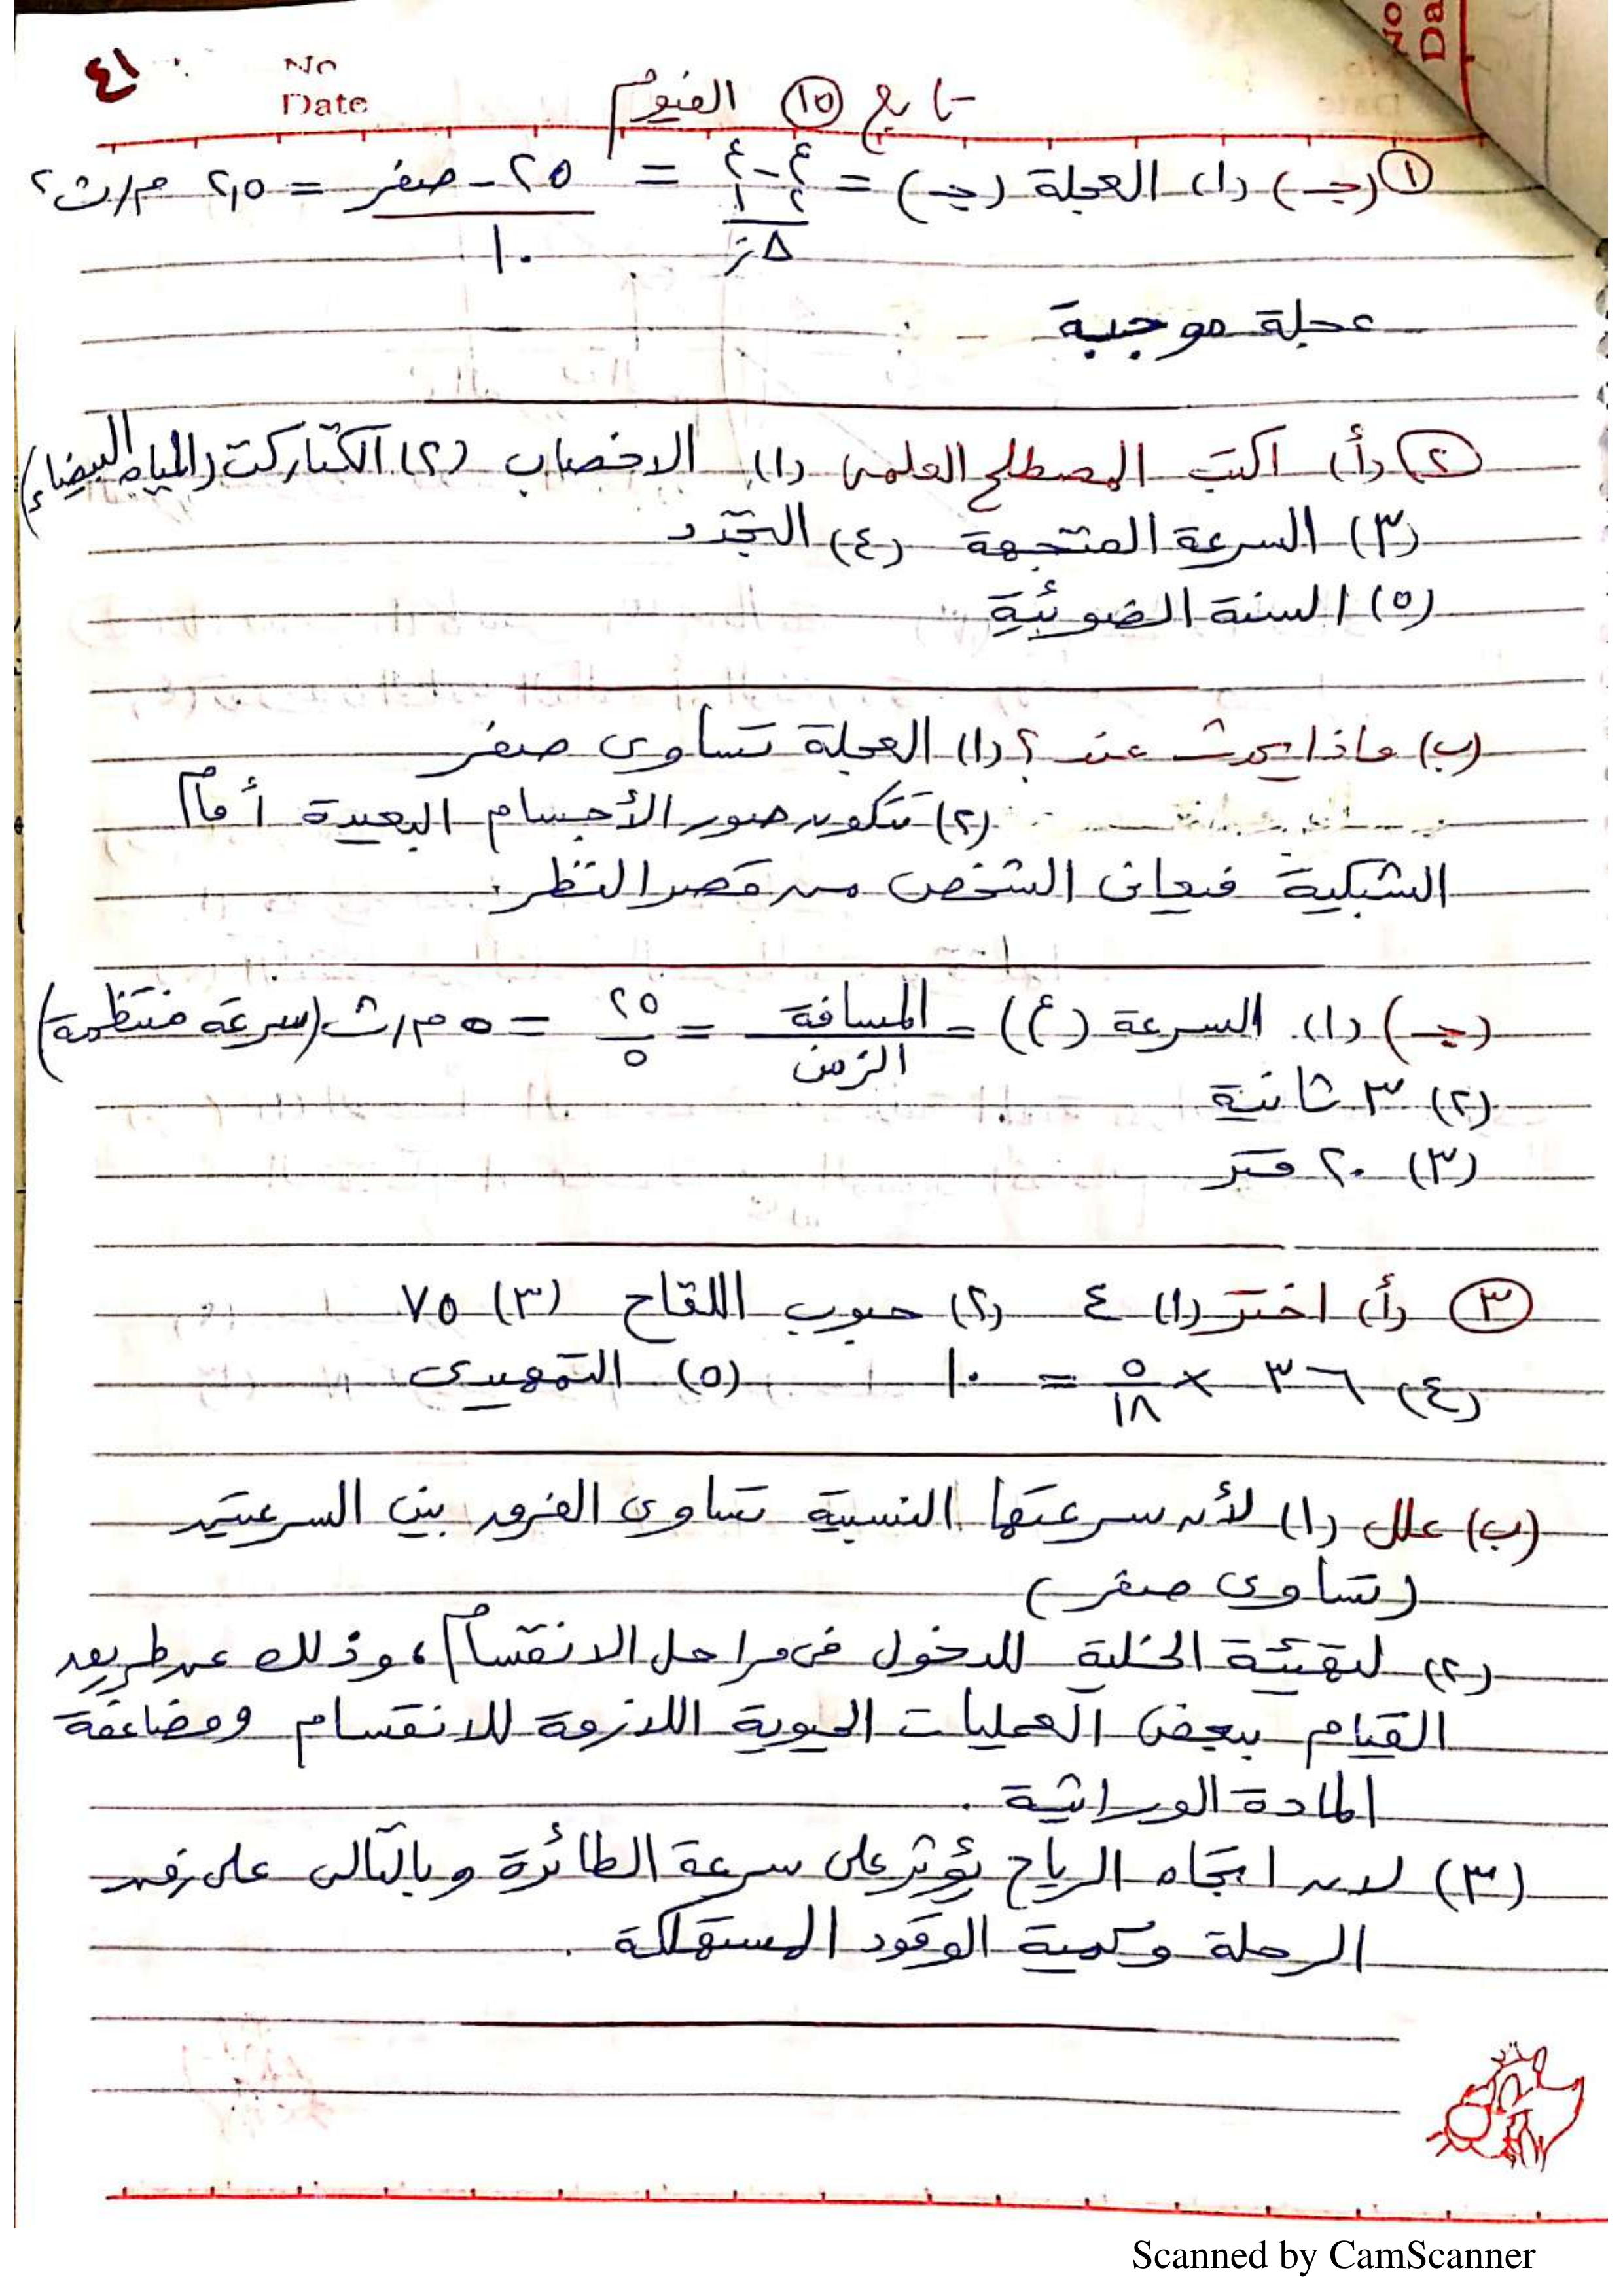 ٤١
No
Date
No
Da
تابع (١٥) الفيوم
(١) (جـ) (١) العجلة (جـ) = ع٢ - ع١ / Δز = ٢٥ - صفر / ١٠ = ٢,٥ م/ث٢
عجلة موجبة
(٢) (أ) اكتب المصطلح العلمى (١) الاخصاب (٢) الكتاركت (المياه البيضاء)
(٣) السرعة المتجهة (٤) التجدد
(٥) السنة الضوئية
(ب) ماذا يحدث عند ؟ (١) العجلة تساوى صفر
(٢) تتكون صور الأجسام البعيدة أمام
الشبكية فيعانى الشخص من قصر النظر.
(جـ) (١) السرعة (ع) = المسافة / الزمن = ٢٥ / ٥ = ٥ م/ث (سرعة منتظمة)
(٢) ٣ ثانية
(٣) ٢٠ متر
(٣) (أ) اختر (١) ٤ (٢) حبوب اللقاح (٣) ٧٥
(٤) ٣٦ × ٥ / ١٨ = ١٠ (٥) التمهيدى
(ب) علل (١) لأن سرعتها النسبية تساوى الفرق بين السرعتين
(تساوى صفر)
(٢) لتهيئة الخلية للدخول فى مراحل الانقسام، وذلك عن طريق
القيام ببعض العمليات الحيوية اللازمة للانقسام ومضاعفة
المادة الوراثية.
(٣) لان اتجاه الرياح يؤثر على سرعة الطائرة وبالتالى على زمن
الرحلة وكمية الوقود المستهلكة.
Scanned by CamScanner